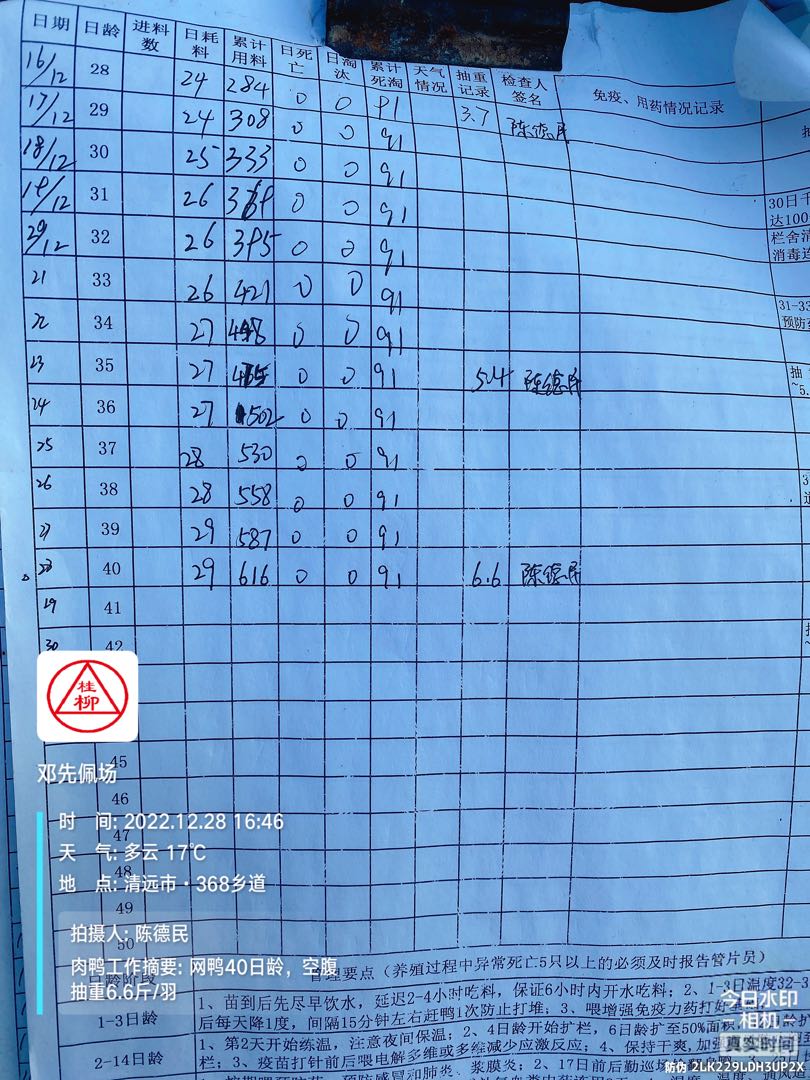 日期 日龄 进料数 日耗料 累计用料 日死亡 日淘汰 累计死淘 天气情况 抽重记录 检查人签名 免疫、用药情况记录
16/12 28 24 284 0 0 91
17/12 29 24 308 0 0 91 3.7 陈德民
18/12 30 25 333 0 0 91
19/12 31 26 369 0 0 91
30日千
达100
29/12 32 26 395 0 0 91
栏舍清
消毒连
21 33 26 421 0 0 91
31-33
预防
22 34 27 448 0 0 91
23 35 27 475 0 0 91 5.4 陈德民
抽
~5.
24 36 27 502 0 0 91
25 37 28 530 0 0 91
26 38 28 558 0 0 91
27 39 29 587 0 0 91
28 40 29 616 0 0 91 6.6 陈德民
29 41
30 42
桂
柳
45
邓先佩场
46
时 间: 2022.12.28 16:46
47
天 气: 多云 17℃
48
地 点: 清远市·368乡道
49
拍摄人: 陈德民
50
肉鸭工作摘要: 网鸭40日龄，空腹
抽重6.6斤/羽
日龄阶段 管理要点（养殖过程中异常死亡5只以上的必须及时报告管片员）
1-3日龄 1、苗到后先尽早饮水，延迟2-4小时吃料，保证6小时内开水吃料；2、1-3日温度32-3
后每天降1度，间隔15分钟左右赶鸭1次防止打堆；3、喂增强免疫力药打好
2-14日龄 1、第2天开始练温，注意夜间保温；2、4日龄开始扩栏，6日龄扩至50%面积
栏；3、疫苗打针前后喂电解多维或多维减少应激反应；4、保持干爽，加强
预防感冒和肺炎、浆膜炎；2、17日前后勤巡场
今日水印
相机
真实时间
防伪 2LK229LDH3UP2X